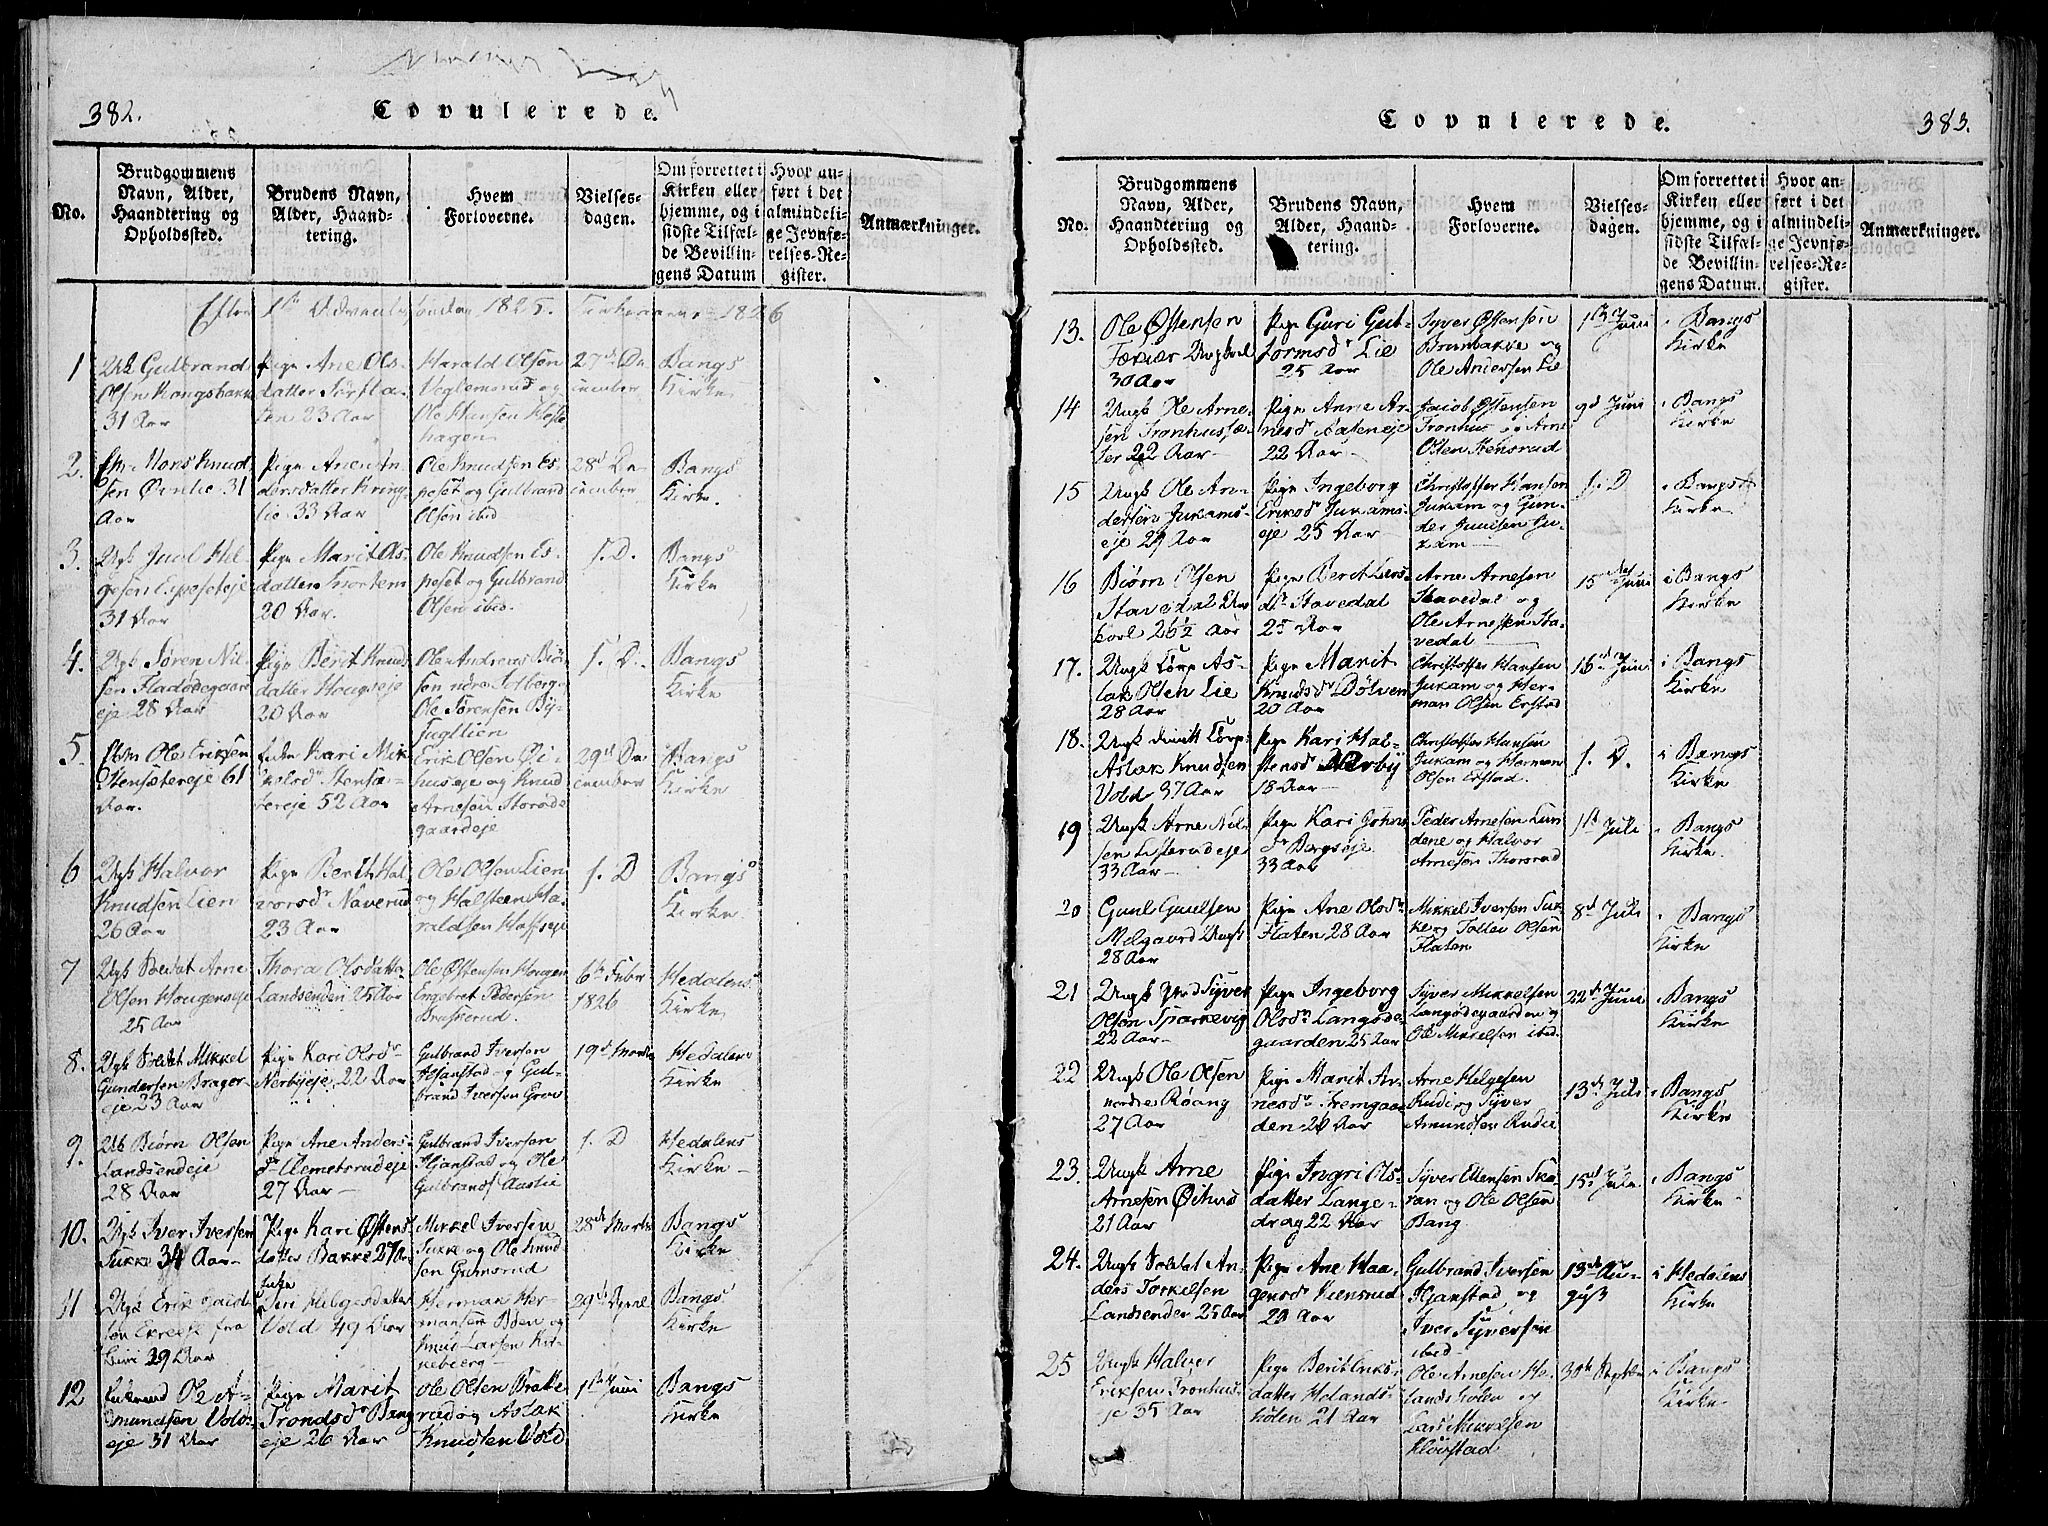 382.
Copulerede.
No.
Brudgommens
Navn, Alder,
Haandtering og
Opholdssted.
Brudens Navn,
Alder, Haand-
tering.
Hvem
Forloverne.
Vielses-
dagen.
Om forrettet i
Kirken eller
hjemme, og i
sidste Tilfæl-
de Bevillin-
gens Datum
Hvor an-
ført i det
almindeli-
ge Jevnfø-
relses-Re-
gister.
Anmærkninger.
Efter 1ste Advent Søndag 1825. Kirkeaaret 1826
1
Ungk Gulbrand
Olsen Kongsbakke
31 Aar
Pige Ane Ols-
datter
23 Aar
Harald Olsen
Veglemsrud og
Ole
hagen
27de De
cember
Bangs
Kirke
2.
Mons Knud
sen Ørnlie 31
Aar
Pige Ane An
dersdatter Kring
lie 33 Aar
Ole Knudsen Es
peset og Gulbrand
Olsen ibid
28de De
cember
Bangs
Kirke.
3.
Ungk Juel Hel
gesen Espeseteje
31 Aar
Pige Marit As
datter
20 Aar.
Ole Knudsen Es
peset og Gulbrand
Olsen ibid.
s. D.
Bangs
Kirke
4.
Ungk Søren Nil
sen Fladødegaard
eje 28 Aar
Pige Berit Knuds
datter Hougseje
20 Aar
Ole Andreas
sen
Ole Sørensen By
fugllien
s. D.
Bangs
Kirke
5.
Ole Eriksen
Stensætereje 61
Aar.
Kari Mik
kelsdr Stensæ
tereje 52 Aar
Erik Olsen Øi
huseje og Knud
Arnesen Storøde
gaardeje
29de De
cember
Bangs
Kirke
6
Ungk Halvor
Knudsen Lien
26 Aar
Pige Berit Hal
vorsdr Naverud
23 Aar
Ole Olsen Lien
og Halsteen Ha
raldsen Hoffseje
s. D
Bangs
Kirke.
7
Ungk Soldat Arne
Olsen Hougenseje
25 Aar
Thora Olsdatter
Landsenden 25 Aar
Ole Østensen Hougen
Engebret Pedersen
Braskerud.
6te Febr
1826
Hedalens
Kirke
8.
Ungk Soldat Mikkel
Gundersen Brager
eje 23 Aar
Pige Kari Olsdr
Nerbyeje 22 Aar
Gulbrand Iversen
Hjanstad og Gul
brand Iversen Grov
19de Marts
Hedalens
Kirke
9.
Uk Biørn Olsen
Landsendeje
28 Aar
Pige Ane Anders
dr Klemetsrudeje
27 Aar
Gulbrand Iversen
Hjanstad og Ole
Gulbrands Aaslie
s. D
Hedalens
Kirke
10.
Ungk Iver Iversen
Jukke 34 Aar
Pige Kari Østens
datter Bakke 27 Aar
Mikkel Iversen
Jukke og Ole Knud
sen Grimsrud
28de Marts
Bangs
Kirke
11
Ungk Erik
fra
39 Aar
Enke
Siri Helgesdatter
Vold 49 Aar
Herman Her
mansen Bøen og
Knud Larsen Kir
keberg
29de April
Bangs
Kirke
12
Enkemand Ole A
mundsen Volds
eje 31 Aar
Pige Marit
Trondsdr Bang
eje 26 Aar
Ole Olsen Brakke
rud og Aslak
Knudsen Vold
1ste Juni
Bangs
Kirke
Copulerede.
383.
No.
Brudgommens
Navn, Alder,
Haandtering og
Opholdssted.
Brudens Navn,
Alder, Haand-
tering.
Hvem
Forloverne.
Vielses-
dagen.
Om forrettet i
Kirken eller
hjemme, og i
sidste Tilfæl-
de Bevillin-
gens Datum.
Hvor an-
ført i det
almindeli-
ge Jevnfø-
relses-Re-
gister.
Anmærkninger.
13.
Ole Østensen
Ungkarl
30 Aar
Pige Guri Gut-
tormsdr Lie
25 Aar
Syver Østensen
Brunbakke og
Ole Andersen Lie
Juni
i Bangs
Kirke
14
Ungk Ole Arne-
sen Tronhussæ-
ter 22 Aar
Pige Anne Ar-
nesdr
22 Aar
Jacob Østensen
Tronhus og Arne
Olsen Stensrud
9de Juni
i Bangs
Kirke
15
Ungk Ole An-
dersen Jukams-
eje 29 Aar
Pige Ingeborg
Eriksdr Jukams-
eje 25 Aar
Christoffer Hansen
Jukam og Gun-
der Juulsen Ju-
kam
s. D
i Bangs
Kirke
16
Biørn Olsen
Stavedal Ung
karl 26½ Aar
Pige Berit Lars-
dr Stavedal
25 Aar
Arne Arnesen
Stavedal og
Ole Arnesen Sta-
vedal
15de Juni
i Bangs
Kirke
17.
Ungk Corp As-
lak Olsen Lie
28 Aar
Pige Marit
Knudsdr Dølven
20 Aar
Christoffer Hansen
Jukam og Her-
man Olsen Erstad
16de Juni
i Bangs
Kirke
18.
Ungk dimitt Corp.
Aslak Knudsen
Vold 37 Aar
Pige Kari Hal-
stensdr Nerby
18 Aar
Christoffer Hansen
Jukam og Herman
Olsen Erstad.
s. D.
i Bangs
Kirke
19
Ungk Arne Nil-
sen Listerudeje
33 Aar
Pige Kari Johns
dr Bergseje
33 Aar
Peder Arnesen Lun
dene og Halvor
Arnesen Thorsrud
1ste Juli
i Bangs
Kirke.
20
Guul Guulsen
Melgaard Ungk
28 Aar
Pige Ane Olsdr
Flaten 28 Aar
Mikkel Iversen Juk
ke og Tollev Olsen
Flaten
8de Juli
i Bangs
Kirke
21
Ungk Syver
Olsen Sparkevig
22 Aar
Pige Ingeborg
Olsdr Langøde-
gaarden 25 Aar
Syver Mikkelsen
Langødegaarden og
Ole Mikkelsen ibid.
22de Juni
i Bangs
Kirke
22
Ungk Ole Olsen
nordre Røang
27 Aar
Pige Marit Ar
nesdr Fremgaar
den 20 Aar
Arne Helgesen
Rudi og Syver
Amundsen Rudie
13de Juli
i Bangs
Kirke
23.
Ungk Arne
Arnesen Øihus
21 Aar
Pige Ingri Ols
datter Lange-
drag 22 Aar
Syver Ellensen Ska
ran og Ole Olsen
Bang
15de Juli
i Bangs
Kirke
24.
Ungk Soldat An
ders Torkelsen
Landsender 25 Aar
Pige Ane Haa-
gensdr Kiensrud
29 Aar
Gulbrand Iversen
Hjanstad og
Iver Syversen
ibid
13de Au-
gust
i Hedalens
Kirke
25
Ungk Halvor
Eriksen Tronhus
eje 35 Aar
Pige Berit Eriks-
datter Helands-
hølen 21 Aar
Ole Arnesen He
landshølen og
Lars Mikkelsen
Kløvstad
30te Septbr
i Bangs
Kirke